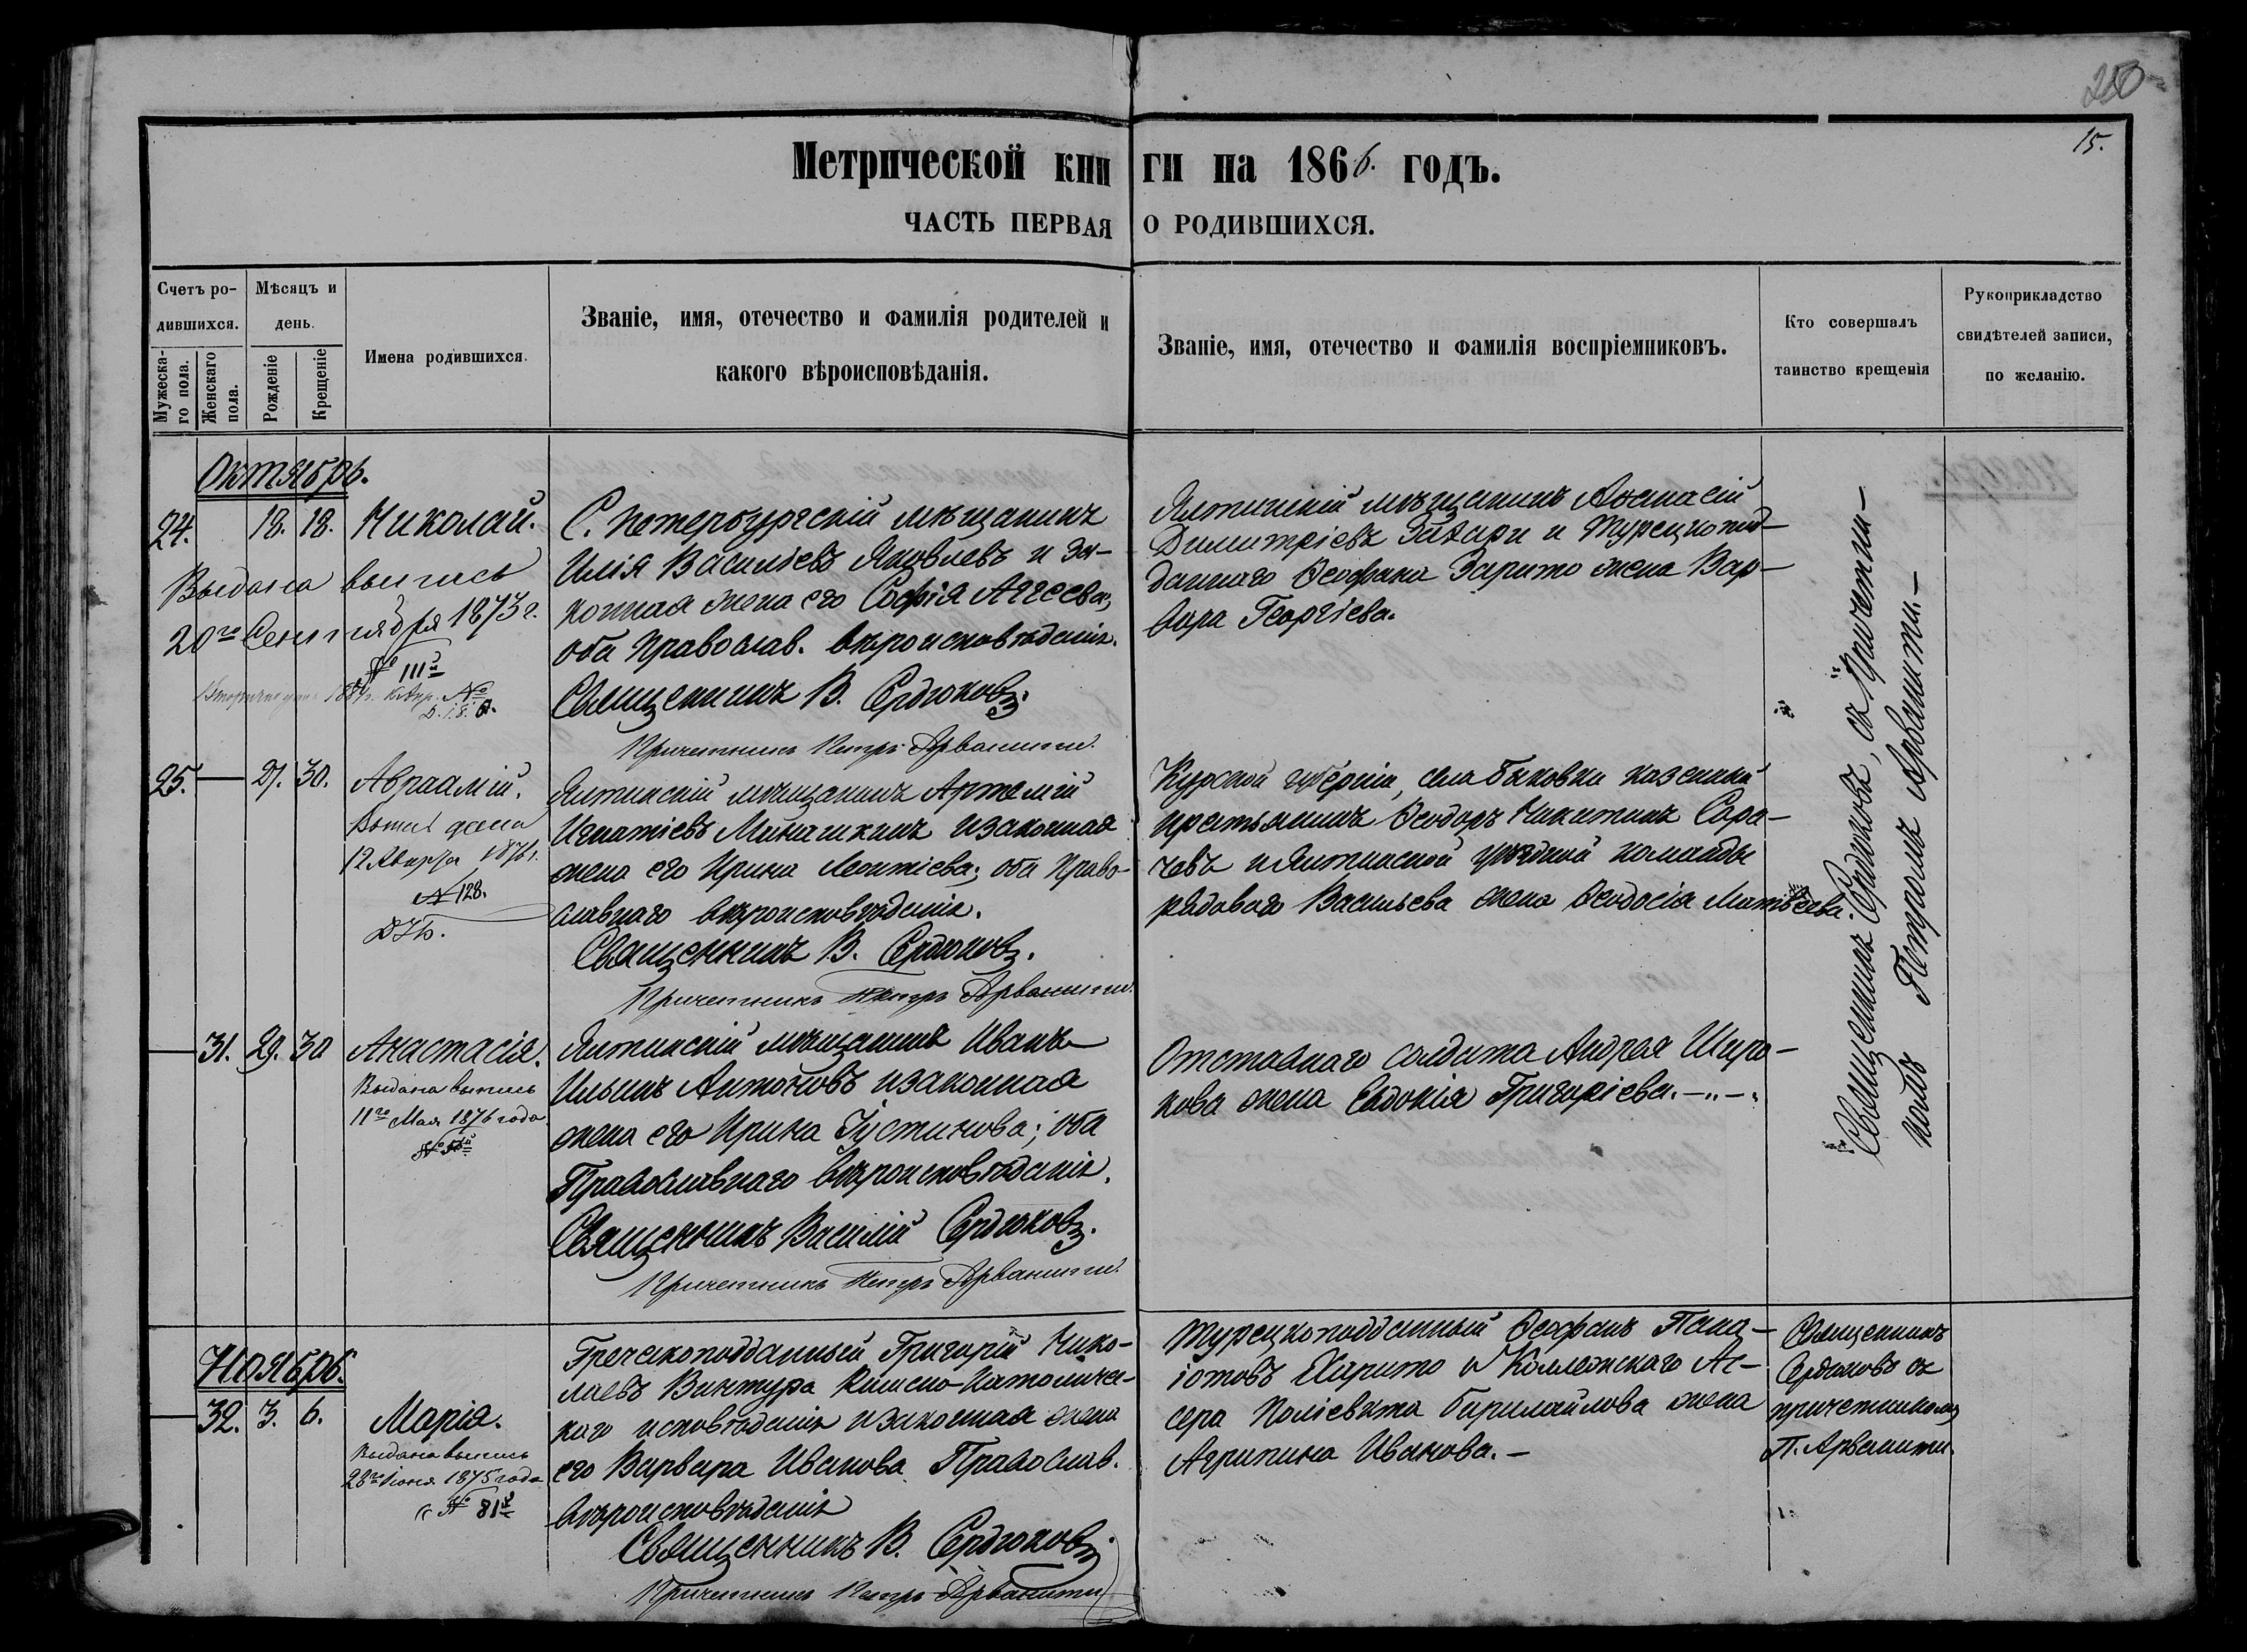 280
15.
Метрической книги на 1866. годъ.
ЧАСТЬ ПЕРВАЯ О РОДИВШИХСЯ.
Счетъ родившихся.
Мужескаго пола.
Женскаго пола.
Мѣсяцъ и день.
Рожденіе
Крещеніе
Имена родившихся.
Званіе, имя, отечество и фамилія родителей и
какого вѣроисповѣданія.
Званіе, имя, отечество и фамилія воспріемниковъ.
Кто совершалъ
таинство крещенія
Рукоприкладство
свидѣтелей записи,
по желанію.
Октябрь.
24. 18. 18. Николай.
Выдана выпись
20го Сентября 1873 г.
№ 111й
С. Петербургскій мѣщанинъ
Илія Васильевъ Яковлевъ и за-
конная жена его Софія Аггеева,
оба Православ. вѣроисповѣданія.
Священникъ В. Сердюковъ.
Причетникъ Петръ Арванити.
Ялтинскій мѣщанинъ Аѳанасій
Димитріевъ и Турецкопод-
даннаго Ѳеофана Харито жена Вар-
вара Георгіева.
Священникъ Сердюковъ, съ Причетни-
комъ Петромъ Арванити.-
25. — 27. 30. Авраамій.
дана
12 1876 г.
№ 128.
Ялтинскій мѣщанинъ Артемій
Игнатіевъ Минашкинъ и законная
жена его Ирина Леонтіева; оба Право-
славнаго вѣроисповѣданія.
Священникъ В. Сердюковъ.
Причетникъ Петръ Арванити.
Курской губерніи, села Быковки казенный
крестьянинъ Ѳеодоръ Никитинъ Сара-
чевъ и Ялтинской уѣздной команды
рядоваго Васильева жена Ѳеодосія Матвѣева.
— 31. 29. 30 Анастасія.
Выдана выпись
11го Мая 1876 года
Ялтинскій мѣщанинъ Иванъ
Ильинъ Антоновъ и законная
жена его Ирина Іустинова; оба
Православнаго вѣроисповѣданія.
Священникъ Василій Сердюковъ.
Причетникъ Петръ Арванити.
Отставнаго солдата Андрея Широ-
кова жена Евдокія Григоріева.
Ноябрь.
— 32. 3. 6. Марія.
Выдана выпись
23го Іюня 1875 года
№ 81й
Греческоподданный Григорій Нико-
лаевъ Винтура Римско-Католичес-
каго исповѣданія и законная жена
его Варвара Иванова Православ.
вѣроисповѣданія
Священникъ В. Сердюковъ.
Причетникъ Петръ Арванити
Турецкоподданный Ѳеофанъ Пана-
іотовъ Харито и Коллежскаго Ас-
сера Поліевкта жена
Агрипина Иванова.-
Священникъ
Сердюковъ съ
причетникомъ
П. Арванити.